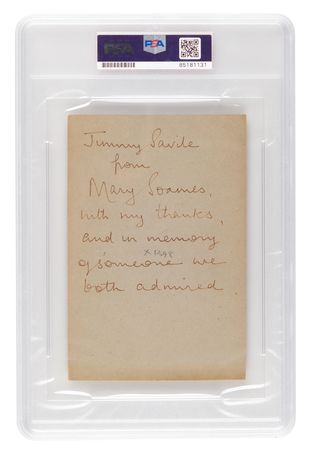 PSA
PSA
85181131
Jimmy Savile
from
Mary Soames,
with my thanks,
and in memory
of someone we
both admired